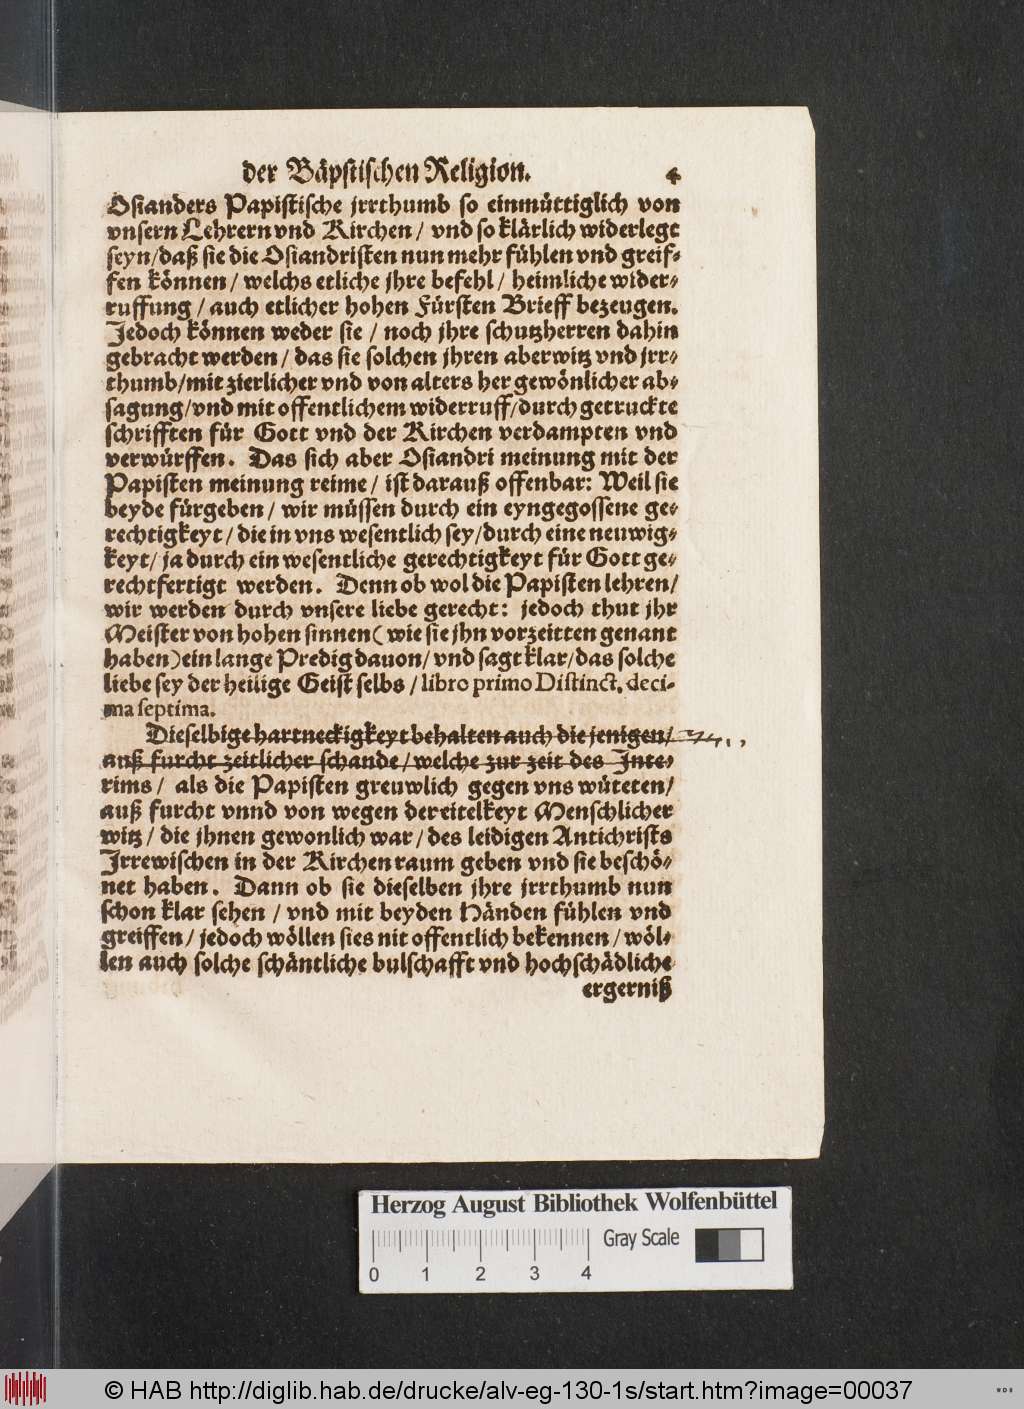 der Bäpstischen Religion. 4
Osianders Papistische jrrthumb so einmüttiglich von
vnsern Lehrern vnd Kirchen / vnd so klärlich widerlegt
seyn/daß sie die Osiandristen nun mehr fühlen vnd greif-
fen können / welchs etliche jhre befehl / heimliche wider-
ruffung / auch etlicher hohen Fürsten Brieff bezeugen.
Jedoch können weder sie / noch jhre schutzherren dahin
gebracht werden / das sie solchen jhren aberwitz vnd jrr-
thumb/mit zierlicher vnd von alters her gewönlicher ab-
sagung/vnd mit offentlichem widerruff/durch getruckte
schrifften für Gott vnd der Kirchen verdampten vnd
verwürffen. Das sich aber Osiandri meinung mit der
Papisten meinung reime / ist darauß offenbar: Weil sie
beyde fürgeben / wir müssen durch ein eyngegossene ge-
rechtigkeyt / die in vns wesentlich sey/durch eine neuwig-
keyt/ ja durch ein wesentliche gerechtigkeyt für Gott ge-
rechtfertigt werden. Denn ob wol die Papisten lehren/
wir werden durch vnsere liebe gerecht: jedoch thut jhr
Meister von hohen sinnen( wie sie jhn vorzeitten genant
haben)ein lange Predig dauon/ vnd sagt klar/das solche
liebe sey der heilige Geist selbs / libro primo Distinct. deci-
ma septima.
Dieselbige hartneckigkeyt behalten auch die jenigen/
auß furcht zeitlicher schande / welche zur zeit des Inte-
rims / als die Papisten greuwlich gegen vns wüteten/
auß furcht vnnd von wegen der eitelkeyt Menschlicher
witz / die jhnen gewonlich war / des leidigen Antichrists
Jrrewischen in der Kirchen raum geben vnd sie beschö-
net haben. Dann ob sie dieselben jhre jrrthumb nun
schon klar sehen / vnd mit beyden Händen fühlen vnd
greiffen / jedoch wöllen sies nit offentlich bekennen / wöl-
len auch solche schäntliche bulschafft vnd hochschädliche
ergerniß
Herzog August Bibliothek Wolfenbüttel
Gray Scale
0 1 2 3 4
© HAB http://diglib.hab.de/drucke/alv-eg-130-1s/start.htm?image=00037